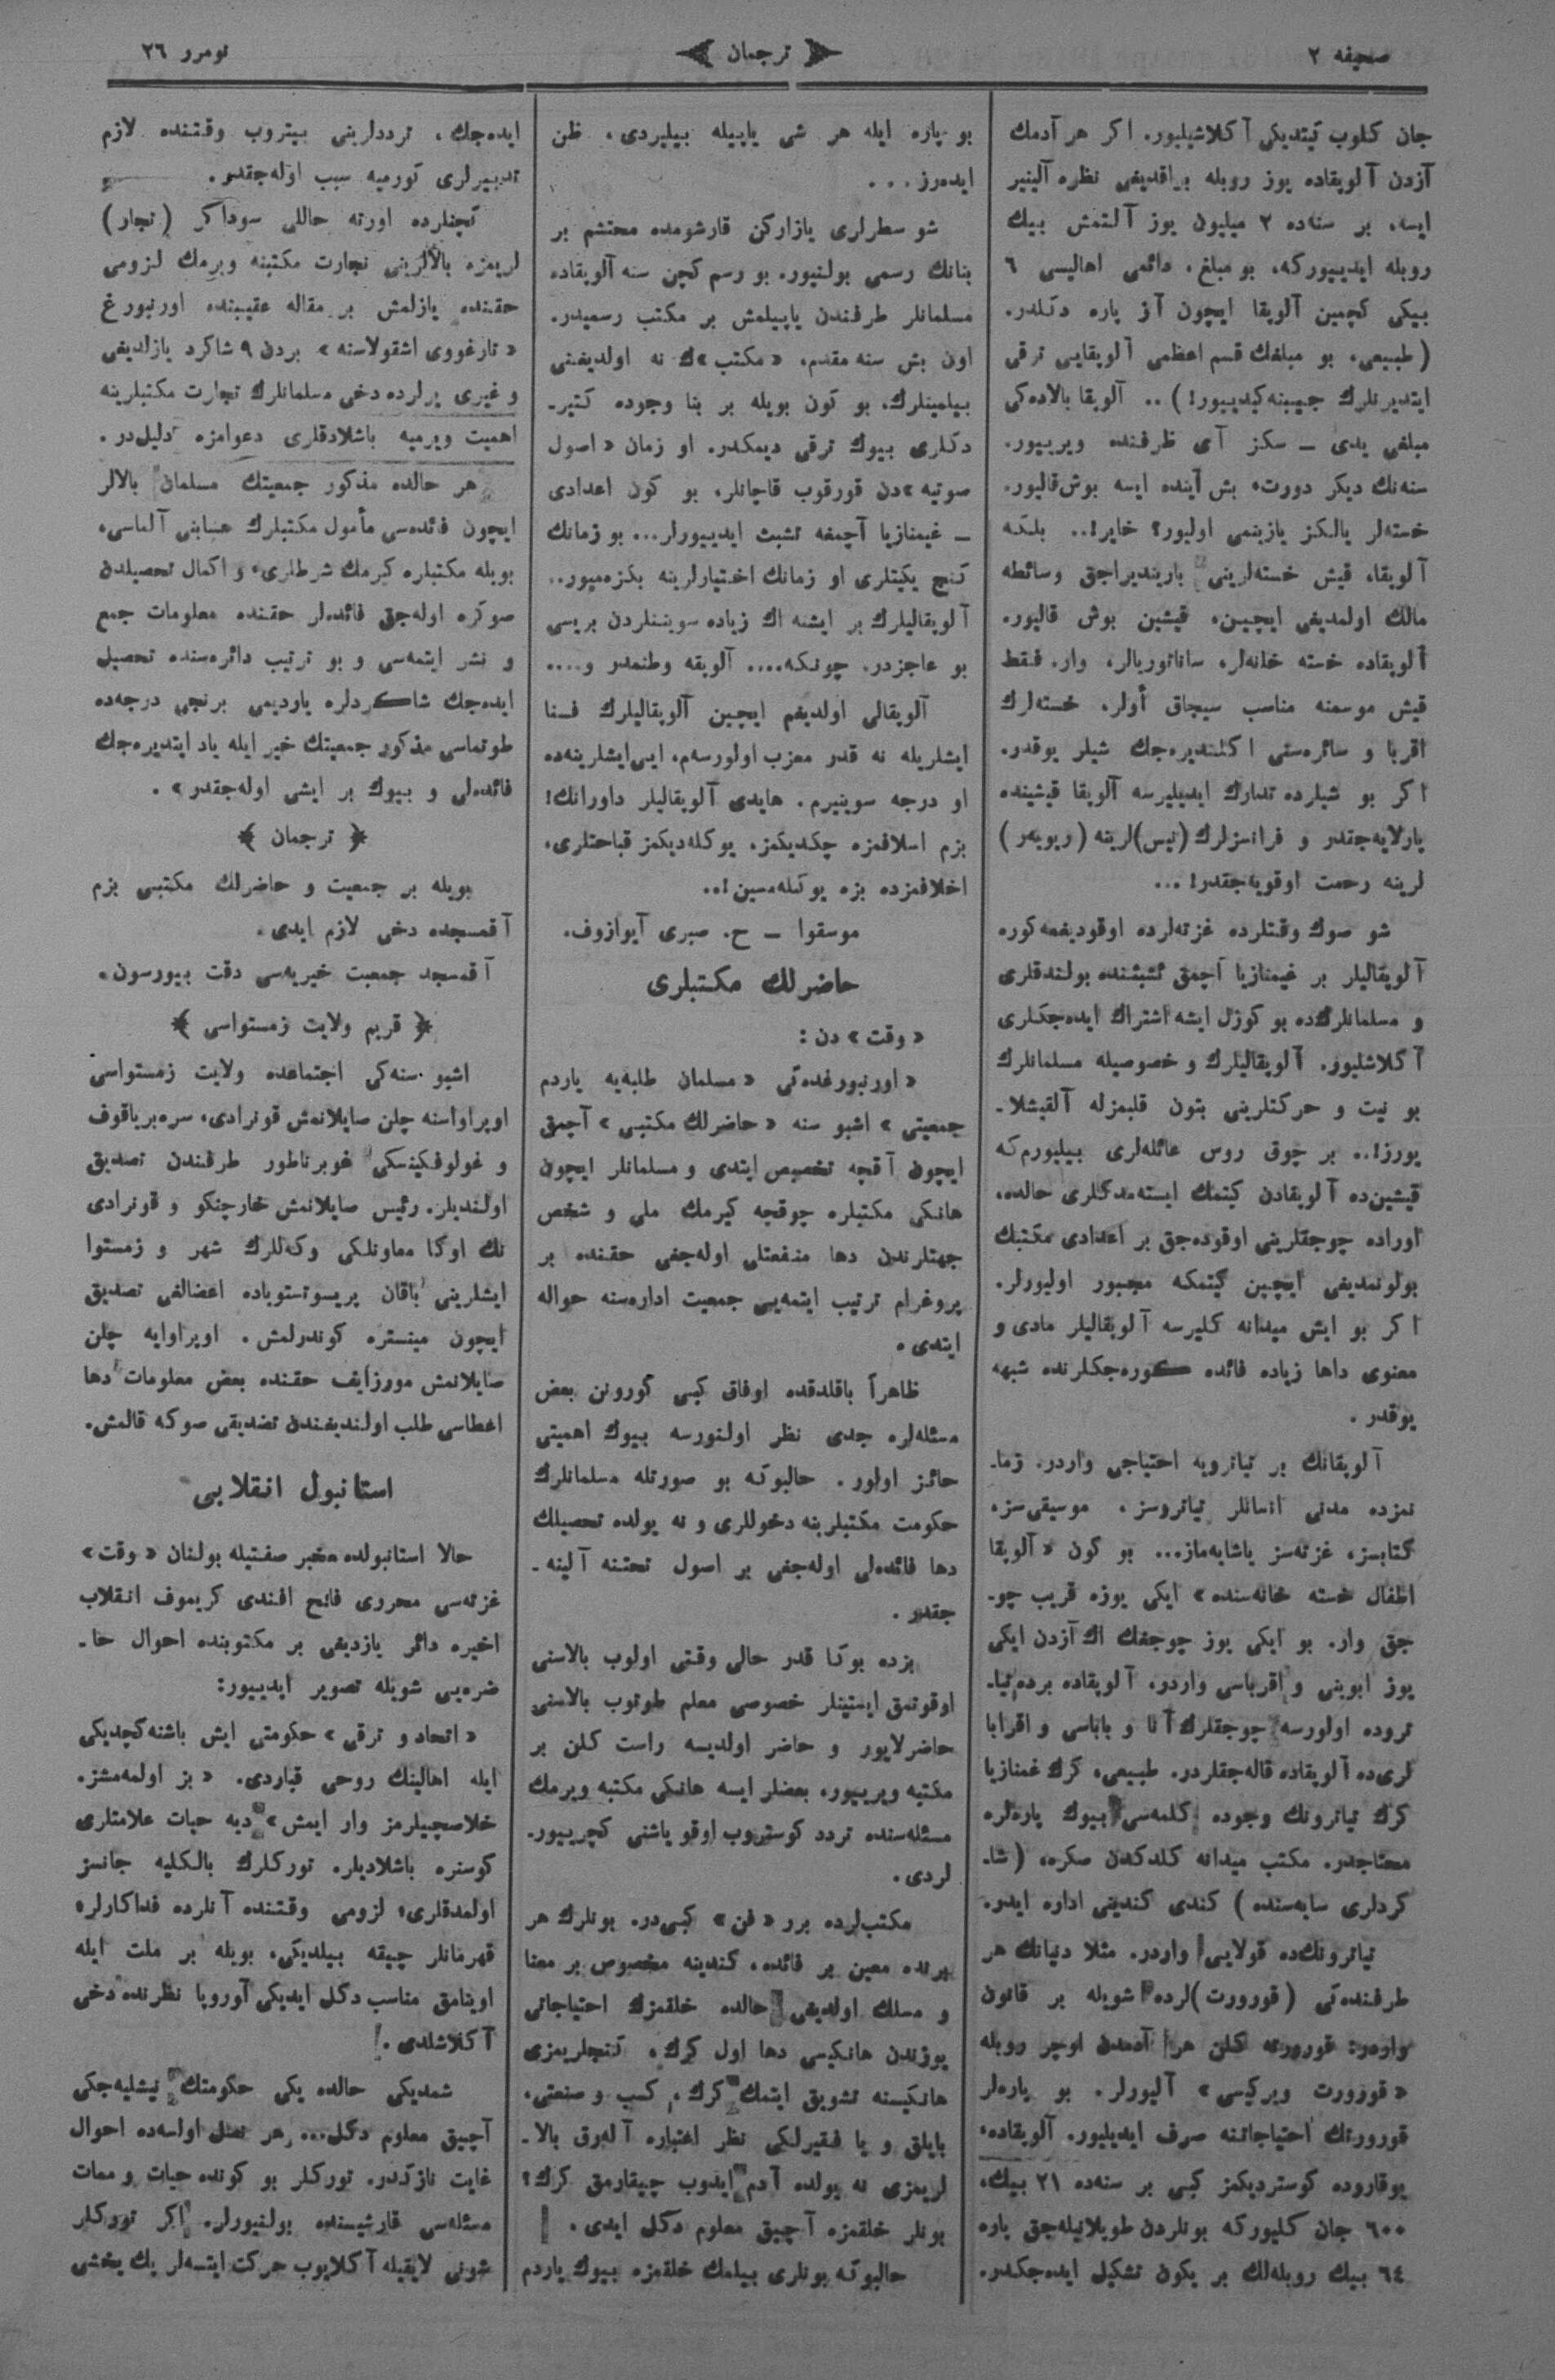 صحیفه ٢
ترجمان
نومرر ٢٦
جان كلوب كیتدیكی آ كلاشیلیور. اكر هر آدمك
آزدن آلوپقاده یوز روبله براقدیغی نظره آلینیر
ایسه، بر سنه‌ده ٢ میلیون یوز آلتمش بیك
روبله ایدییوركه، بو مبلغ، دائمی اهالیسی ٦
بیكی كچمین آلوپقا ایچون آز پاره دكلدر.
(طبیعی، بو مبلغك قسم اعظمی آلوپقایی ترقی
ایتدیرنلرك جیبینه كیدییور!).. آلوپقا بالاده‌كی
مبلغی یدی ــ سكز آی ظرفنده ویرییور.
سنه‌نك دیكر دورت، بش آینده ایسه بوش قالیور.
خسته‌لر یالكز یازینمی اولیور؟ خایر!.. بلكه
آلوپقا، قیش خسته‌لرینی باریندیراجق وسائطه
مالك اولمدیغی ایچین، قیشین بوش قالیور.
آلوپقاده خسته خانه‌لر، ساناتوریالر، وار. فقط
قیش موسمنه مناسب سیجاق أولر، خسته‌لرك
اقربا و سائره‌سنی ا كلندیره‌جك شیلر یوقدر.
ا كر بو شیلرده تدارك ایدیلیرسه آلوپقا قیشینده
پارلایه‌جقدر و فرانسزلرك (نیس)لرینه (ریویه‌ر)
لرینه رحمت اوقویه‌جقدر! ...
شو صوك وقتلرده غزته‌لرده اوقودیغمه كوره
آلوپقالیلر بر غیمنازیا آچمق تشبثنده بولندقلری
و مسلمانلرك‌ده بو كوزل ایشه اشتراك ایده‌جكلری
آ كلاشلیور. آلوپقالیلرك و خصوصیله مسلمانلرك
بو نیت و حركتلرینی بتون قلبمزله آلقیشلا-
یورز!.. بر چوق روس عائله‌لری بیلیورم‌كه
قیشین‌ده آلوپقادن كیتمك ایسته‌مدكلری حالده،
اوراده چوجقلرینی اوقوده‌جق بر اعدادی مكتبك
بولونمدیغی ایچین كیتمكه مجبور اولیورلر.
ا كر بو ایش میدانه كلیرسه آلوپقالیلر مادی و
معنوی داها زیاده فائده كوره‌جكلرنده شبهه
یوقدر.
آلوپقانك بر تیاترویه احتیاجی واردر. زما-
نمزده مدنی انسانلر تیاتروسز، موسیقی‌سز،
كتابسز، غزته‌سز یاشایه‌ماز... بو كون «آلوپقا
اطفال خسته خانه‌سنده» ایكی یوزه قریب چو-
جق وار. بو ایكی یوز چوجغك اك آزدن ایكی
یوز ابوینی و اقرباسی واردر، آلوپقاده برده تیا-
تروده اولورسه چوجقلرك آنا و باباسی و اقرابا
لری‌ده آلوپقاده قاله‌جقلردر. طبیعی، كرك غمنازیا
كرك تیاترونك وجوده كلمه‌سی بیوك پاره‌لره
محتاجدر. مكتب میدانه كلدكدن صكره، (شا-
كردلری سایه‌سنده) كندی كندینی اداره ایدر.
تیاترونك‌ده قولایی واردر. مثلا دنیانك هر
طرفنده‌كی (قورورت)لرده شویله بر قانون
واردر: قورورته كلن هر آدمدن اوچر روبله
«قورورت ویركیسی» آلیورلر. بو پاره‌لر
قورورتك احتیاجاتنه صرف ایدیلیور. آلوپقاده،
یوقاروده كوستردیكمز كبی بر سنه‌ده ٢١ بیك،
٦٠٠ جان كلیوركه بونلردن طوپلانیله‌جق پاره
٦٤ بیك روبله‌لك بر یكون تشكیل ایده‌جكدر.
بو پاره ایله هر شی یاپیله بیلیردی، ظن
ایده‌رز...
شو سطرلری یازاركن قارشومده محتشم بر
بنانك رسمی بولنیور. بو رسم كچن سنه آلوپقاده
مسلمانلر طرفندن یاپیلمش بر مكتب رسمیدر.
اون بش سنه مقدم، «مكتب»ك نه اولدیغنی
بیلمینلرك، بو كون بویله بر بنا وجوده كتیر-
دكلری بیوك ترقی دیمكدر. او زمان «اصول
صوتیه»دن قورقوب قاچانلر، بو كون اعدادی
ــ غیمنازیا آچمغه تشبث ایدییورلر... بو زمانك
كنج یكیتلری او زمانك اختیارلرینه بكزه‌میور..
آلوپقالیلرك بر ایشنه اك زیاده سویننلردن بریسی
بو عاجزدر. چونكه.... آلوپقه وطنمدر و....
آلوپقالی اولدیغم ایچین آلوپقالیلرك فسنا
ایشلریله نه قدر معزب اولورسه‌م، ایی ایشلرینه‌ده
او درجه سوینیرم. هایدی آلوپقالیلر داورانك!
بزم اسلافمزه چكدیكمز، یوكله‌دیكمز قباحتلری،
اخلافمزده بزه یوكله‌مسین!..
موسقوا ــ ح. صبری آیوازوف.
حاضرلك مكتبلری
«وقت» دن:
«اورنبورغده‌كی «مسلمان طلبه‌یه یاردم
جمعیتی» اشبو سنه «حاضرلك مكتبی» آچمق
ایچون آقچه تخصیص ایتدی و مسلمانلر ایچون
هانكی مكتبلره چوقجه كیرمك ملی و شخص
جهتلرندن دها منفعتلی اوله‌جغی حقنده بر
پروغرام ترتیب ایتمه‌یی جمعیت اداره‌سنه حواله
ایتدی.
ظاهراً باقلدقده اوفاق كبی كورونن بعض
مسئله‌لره جدی نظر اولنورسه بیوك اهمیتی
حائز اولور. حالبوكه بو صورتله مسلمانلرك
حكومت مكتبلرینه دخوللری و نه یولده تحصیلك
دها فائده‌لی اوله‌جغی بر اصول تحتنه آلینه-
جقدر.
بزده بوكا قدر حالی وقتی اولوب بالاسنی
اوقوتمق ایستینلر خصوصی معلم طوتوب بالاسنی
حاضرلایور و حاضر اولدیسه راست كلن بر
مكتبه ویرییور، بعضلر ایسه هانكی مكتبه ویرمك
مسئله‌سنده تردد كوستروب اوقو یاشنی كچرییور-
لردی.
مكتب‌لرده برر «فن» كبی‌در. بونلرك هر
برنده معین بر فائده، كندینه مخصوص بر معنا
و مسلك اولدیغی حالده خلقمزك احتیاجاتی
یوزندن هانكیسی دها اول كرك، كنجلریمزی
هانكیسنه تشویق ایتمك كرك، كسب و صنعتی،
بایلق و یا فقیرلكی نظر اعتباره آله‌رق بالا-
لریمزی نه یولده آدم ایدوب چیقارمق كرك؟
بونلر خلقمزه آچیق معلوم دكل ایدی.
حالبوكه بونلری بیلمك خلقمزه بیوك یاردم
ایده‌جك، ترددلرینی بیتروب وقتنده لازم
تدبیرلری كورمیه سبب اوله‌جقدر.
كچنلرده اورته حاللی سوداكر (تجار)
لریمزه بالالرینی تجارت مكتبنه ویرمك لزومی
حقنده یازلمش بر مقاله عقیبنده اورنبورغ
«تارغووی اشقولاسنه» بردن ٩ شاكرد یازلدیغی
و غیری یرلرده دخی مسلمانلرك تجارت مكتبلرینه
اهمیت ویرمیه باشلادقلری دعوامزه دلیل‌در.
هر حالده مذكور جمعیتك مسلمان بالالر
ایچون فائده‌سی مأمول مكتبلرك حسابنی آلماسی،
بویله مكتبلره كیرمك شرطلری، و اكمال تحصیلدن
صوكره اوله‌جق فائده‌لر حقنده معلومات جمع
و نشر ایتمه‌سی و بو ترتیب دائره‌سنده تحصیل
ایده‌جك شاكردلره یاردیمی برنجی درجه‌ده
طوتماسی مذكور جمعیتك خیر ایله یاد ایتدیره‌جك
فائده‌لی و بیوك بر ایشی اوله‌جقدر».
﴿ ترجمان ﴾
بویله بر جمعیت و حاضرلك مكتبی بزم
آقمسجده دخی لازم ایدی.
آقمسجد جمعیت خیریه‌سی دقت بیورسون.
﴿ قریم ولایت زمستواسی ﴾
اشبو سنه‌كی اجتماعده ولایت زمستواسی
اوپراواسنه چلن صایلانمش قونرادی، سره‌بریاقوف
و غولوفكینسكی غوبرناطور طرفندن تصدیق
اولندیلر. رئیس صایلانمش خارچنكو و قونرادی
نك اوكا معاونلكی وكه‌للرك شهر و زمستوا
ایشلرینی باقان پریسوتستویاده اعضالغی تصدیق
ایچون مینستره كوندرلمش. اوپراوایه چلن
صایلانمش مورزایف حقنده بعض معلومات دها
اعطاسی طلب اولندیغندن تصدیقی صوكه قالمش.
استانبول انقلابی
حالا استانبولده مخبر صفتیله بولنان «وقت»
غزته‌سی محرری فاتح افندی كریموف انقلاب
اخیره دائر یازدیغی بر مكتوبنده احوال حا-
ضره‌یی شویله تصویر ایدییور:
«اتحاد و ترقی» حكومتی ایش باشنه كچدیكی
ایله اهالینك روحی قباردی. «بز اولمه‌مشز.
خلاصچیلرمز وار ایمش» دیه حیات علامتلری
كوستره باشلادیلر. توركلرك بالكلیه جانسز
اولمدقلری، لزومی وقتنده آنلرده فداكارلر،
قهرمانلر چیقه بیلدیكی، بویله بر ملت ایله
اوینامق مناسب دكل ایدیكی آوروپا نظرنده دخی
آ كلاشلدی.
شمدیكی حالده یكی حكومتك نیشلیه‌جكی
آچیق معلوم دكل... هر نصل اولسه‌ده احوال
غایت نازكدر. توركلر بو كونده حیات و ممات
مسئله‌سی قارشیسنده بولنیورلر. اكر توركلر
شونی لایقیله آ كلایوب حركت ایتسه‌لر پك یخشی